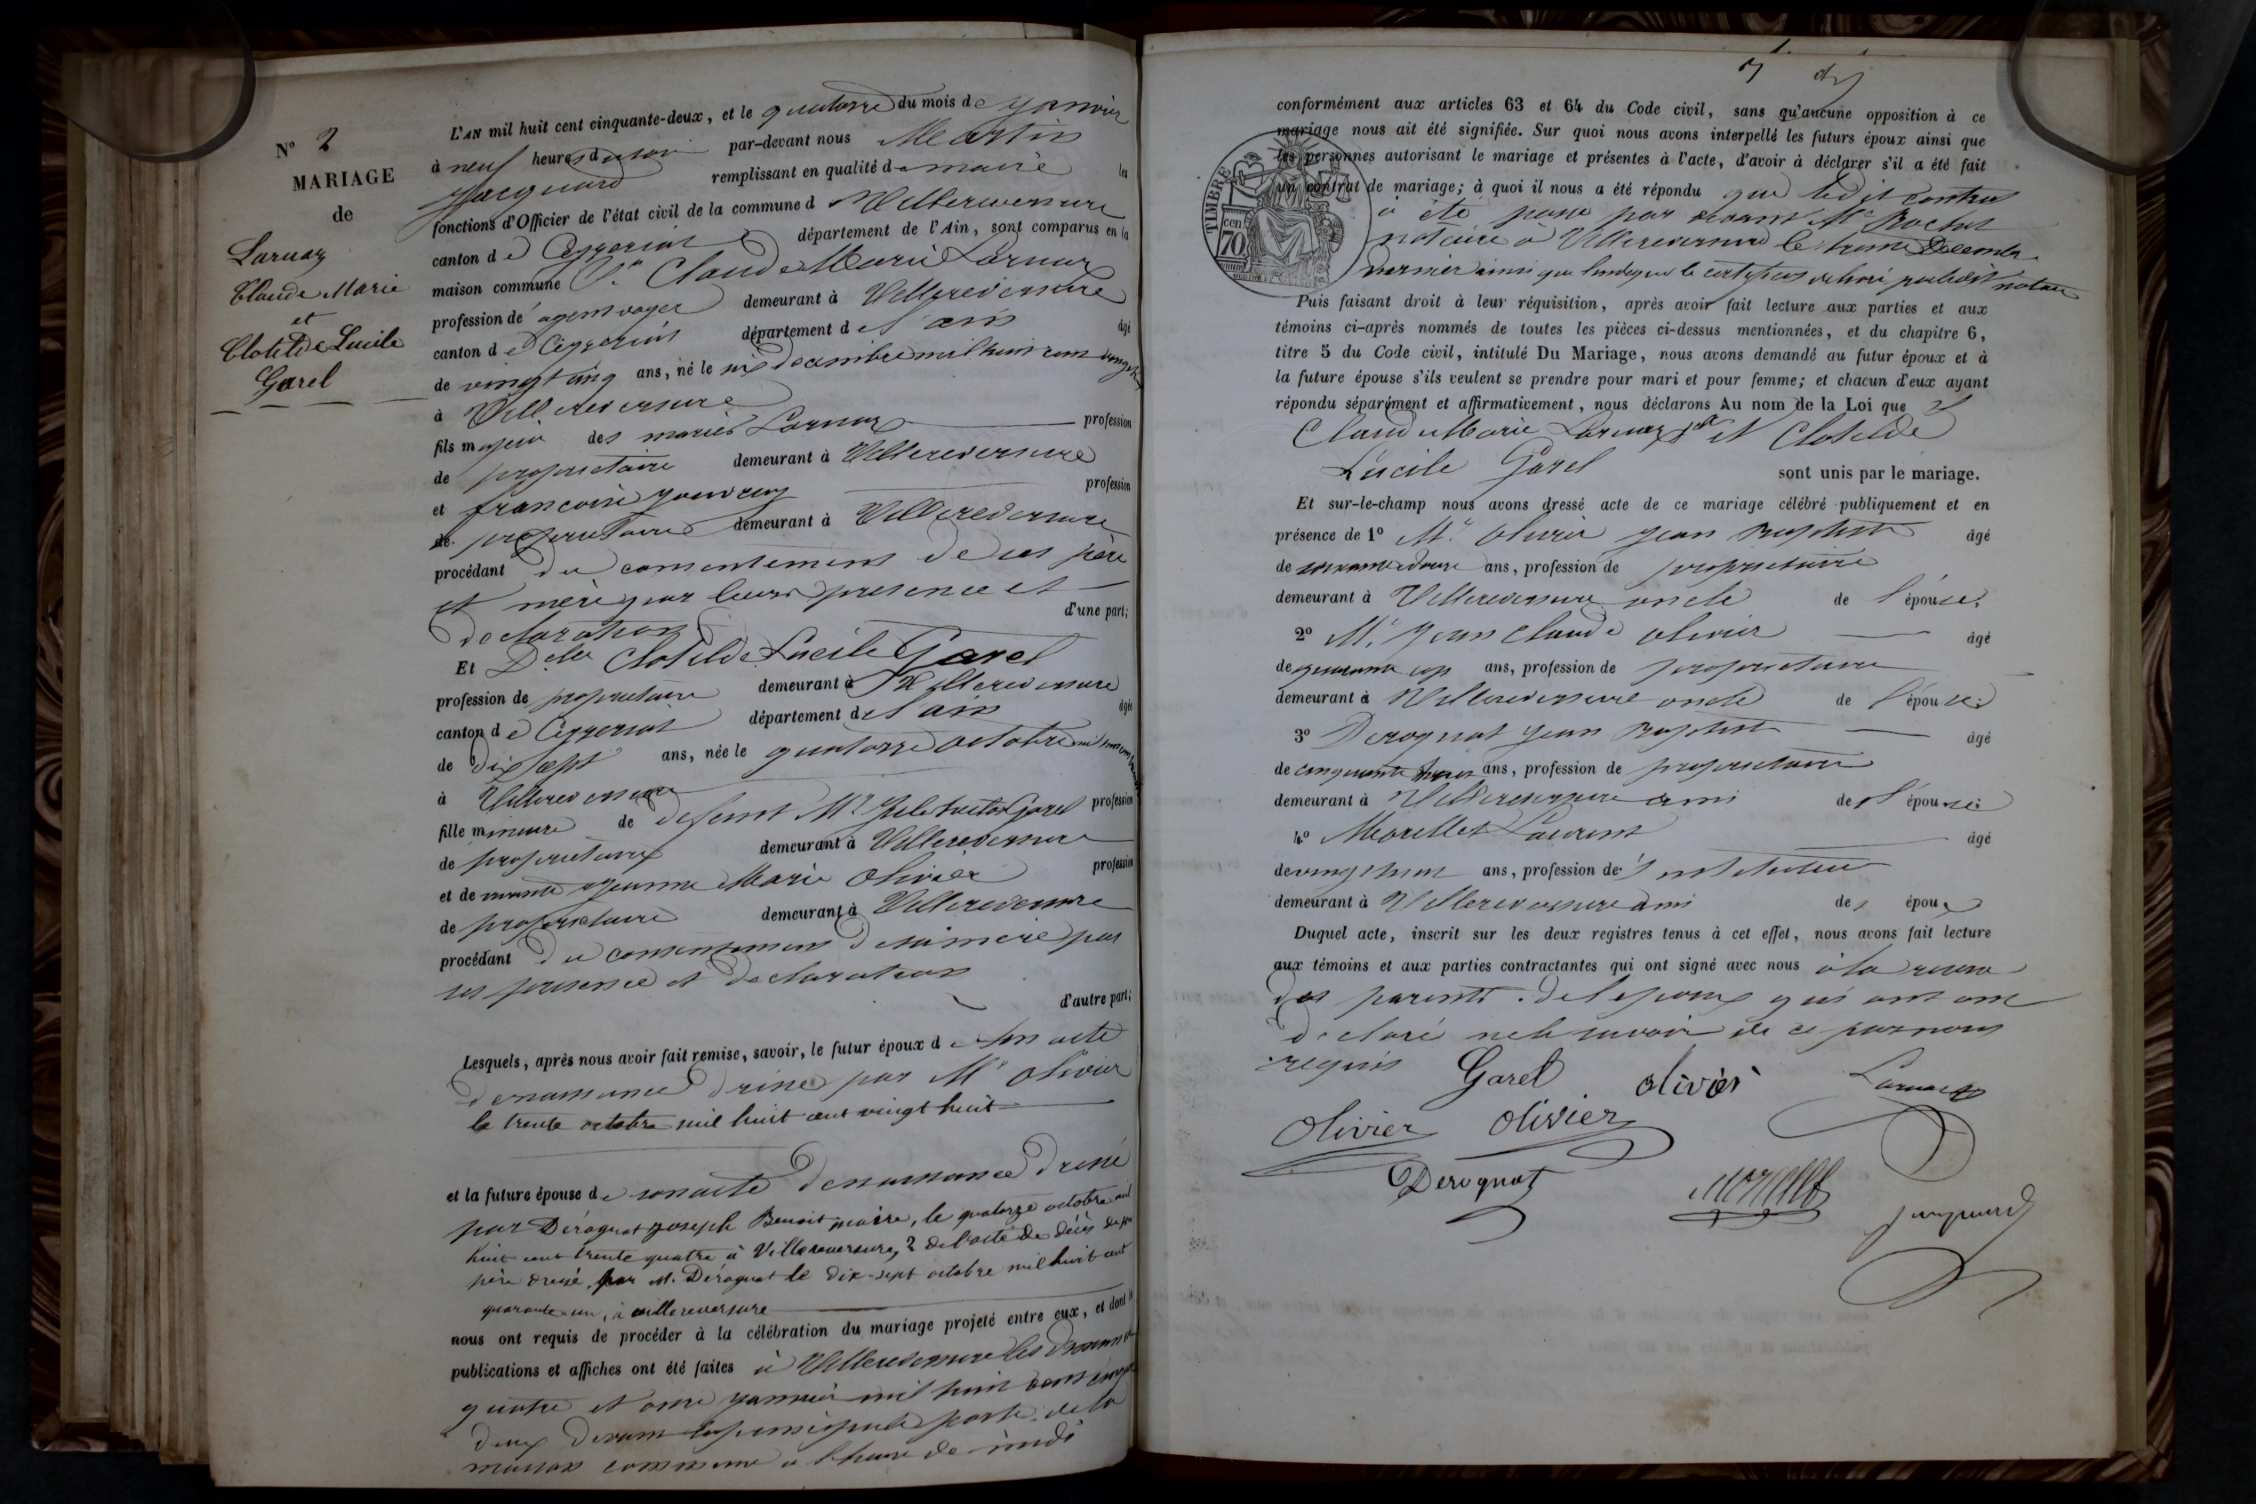 N° 2
MARIAGE
de
Larnaz
Claude Marie
et
Clotilde Lucile
Garel
L'AN mil huit cent cinquante-deux, et le quatorze du mois de janvier
à neuf heures du soir par-devant nous Martin
Jacquard remplissant en qualité de maire les
fonctions d'Officier de l'état civil de la commune d Villereversure
canton de Ceyzeriat département de l'Ain, sont comparus en la
maison commune Sr Claude Marie Larnaz
profession de agent voyer demeurant à Villereversure
canton de Ceyzeriat département de l'ain âgé
de vingt cinq ans, né le six décembre mil huit cent vingt
à Villereversure
fils majeur des mariés Larnaz profession
de propriétaire demeurant à Villereversure
et francoise profession
de propriétaire demeurant à Villereversure
procédant du consentement de ses père
et mère par leur présence et
déclaration d'une part;
Et Delle Clotilde Lucile Garel
profession de propriétaire demeurant à Villereversure
canton de Ceyzeriat département de l'ain âgée
de dix sept ans, née le quatorze octobre mil huit cent
à Villereversure
fille mineure de défunt Mr Garel profession
de propriétaire demeurant à Villereversure
et de vivante jeanne Marie Olivier profession
de propriétaire demeurant à Villereversure
procédant du consentement de sa mère par
ses présence et déclaration
d'autre part;
Lesquels, après nous avoir fait remise, savoir, le futur époux de son acte
de naissance dressé par Mr Olivier
le trente octobre mil huit cent vingt huit
et la future épouse de son acte de naissance dressé
par Dérognat joseph Benoit maire, le quatorze octobre mil
huit cent trente quatre à Villereversure, 2 de l'acte de décès de son
père dressé par M. Dérognat le dix-sept octobre mil huit cent
quarante-un, à villereversure
nous ont requis de procéder à la célébration du mariage projeté entre eux, et dont les
publications et affiches ont été faites à Villereversure les dimanches
quatre et onze janvier mil huit cent cinquante
deux devant la principale porte de la
maison commune à l'heure de midi
conformément aux articles 63 et 64 du Code civil, sans qu'aucune opposition à ce
mariage nous ait été signifiée. Sur quoi nous avons interpellé les futurs époux ainsi que
les personnes autorisant le mariage et présentes à l'acte, d'avoir à déclarer s'il a été fait
un contrat de mariage; à quoi il nous a été répondu que ledit contrat
a été passé par devant Me Rochet
notaire à Villereversure le trente Décembre
dernier ainsi que l'indique le certificat délivré par ledit notaire
TIMBRE
70
Puis faisant droit à leur réquisition, après avoir fait lecture aux parties et aux
témoins ci-après nommés de toutes les pièces ci-dessus mentionnées, et du chapitre 6,
titre 5 du Code civil, intitulé Du Mariage, nous avons demandé au futur époux et à
la future épouse s'ils veulent se prendre pour mari et pour femme; et chacun d'eux ayant
répondu séparément et affirmativement, nous déclarons Au nom de la Loi que
Claude Marie Larnaz et Clotilde
Lucile Garel sont unis par le mariage.
Et sur-le-champ nous avons dressé acte de ce mariage célébré publiquement et en
présence de 1° Mr olivier jean Baptiste âgé
de ans, profession de propriétaire
demeurant à Villereversure oncle de l'épouse;
2° Mr jean claude olivier âgé
de quarante ans, profession de propriétaire
demeurant à Villereversure oncle de l'épouse;
3° Derognat jean Baptiste âgé
de cinquante ans, profession de propriétaire
demeurant à Villereversure ami de l'épouse;
4° Morellet Laurent âgé
de vingt huit ans, profession de instituteur
demeurant à Villereversure ami des époux
Duquel acte, inscrit sur les deux registres tenus à cet effet, nous avons fait lecture
aux témoins et aux parties contractantes qui ont signé avec nous à la reserve
des parents de l'epoux qui ont
déclaré ne le savoir de ce par nous
requis
Garel olivier Larnaz
Olivier olivier
Derognat Morellet Jacquard